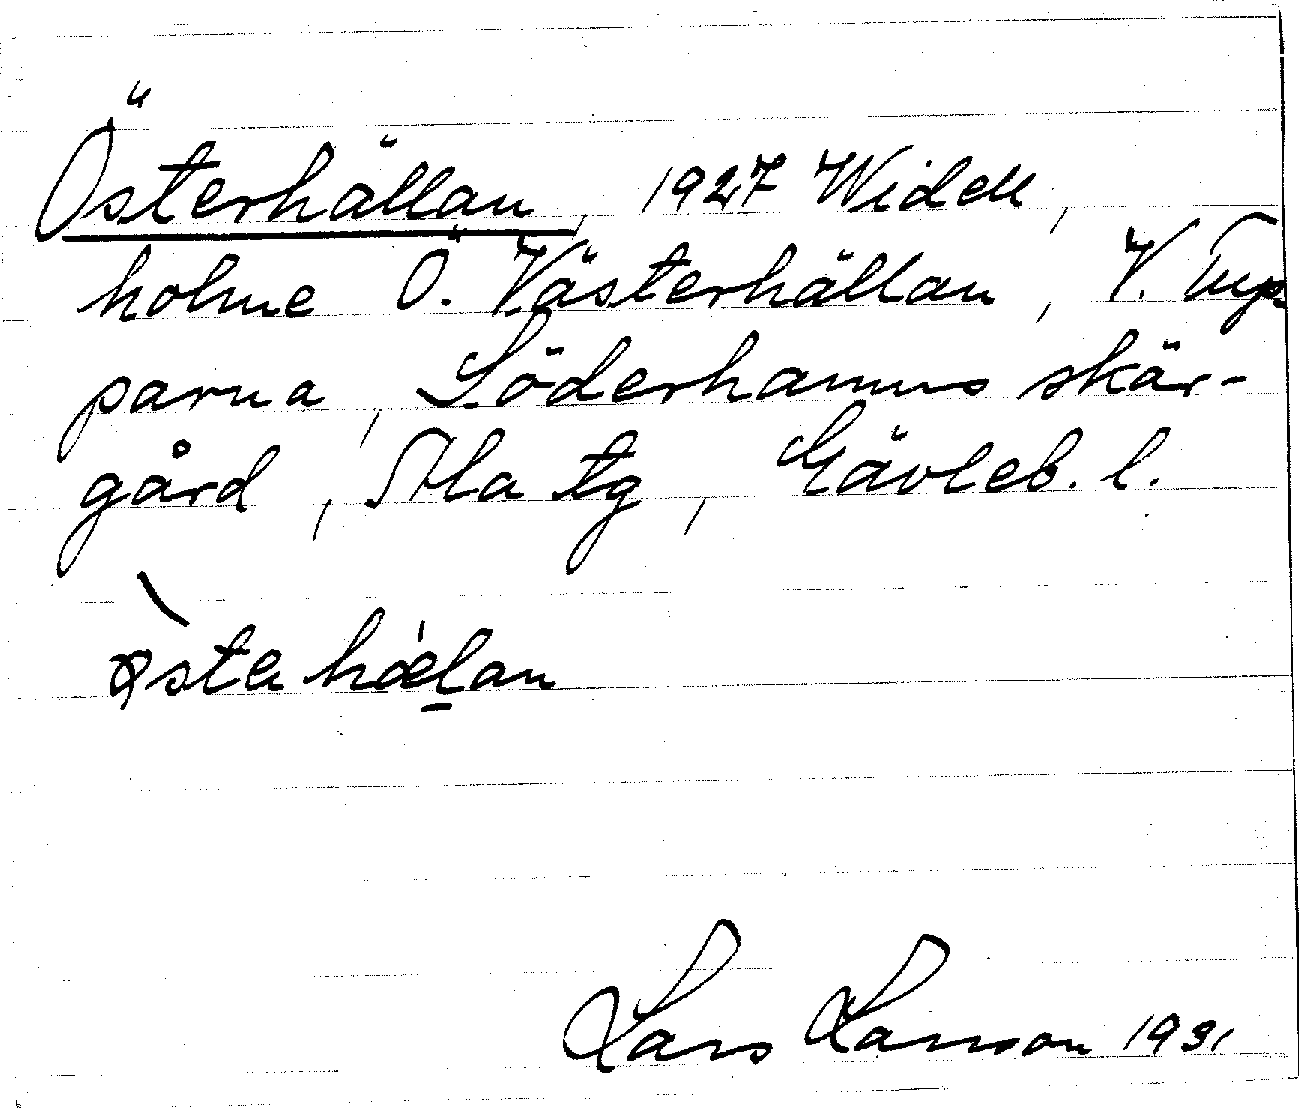 Österhällan, 1927 Widell,
holme Ö. Västerhällan, V. Tup
parna, Söderhamns skär-
gård, Ala tg, Gävleb. l.
östa hælan
Lars Larsson 1931